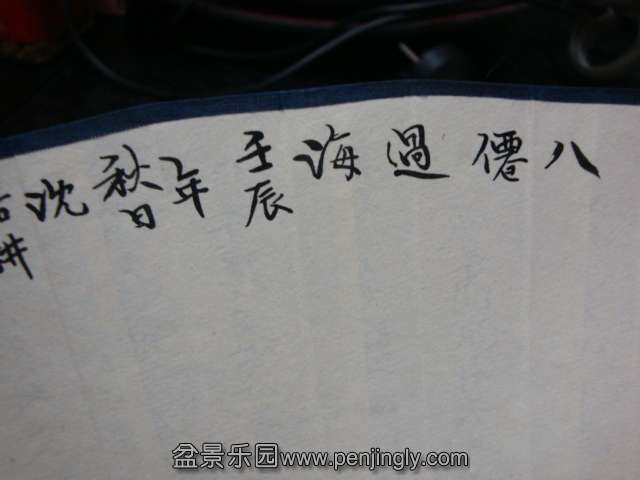 八僊過海壬辰年秋日沈
盆景乐园www.penjingly.com